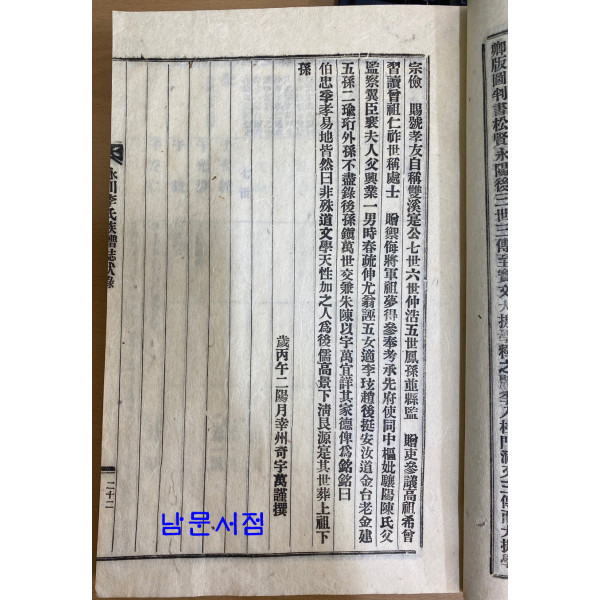 卿版圖判書松賢永陽後三世三傳至實文大提學
宗儉　賜號孝友自稱雙溪寔公七世六世仲浩五世鳳孫並縣監　贈吏參議高祖希曾
習讀曾祖仁祚世稱處士　贈禦侮將軍祖夢得參奉考承先府使同中樞妣驪陽陳氏父
監察翼臣襄夫人父興業一男時春疏伸尤翁誣五女適李玹趙後挺安汝道金台老金建
五孫二瑜珩外孫不盡錄後孫鎭萬世交兼朱陳以字萬宜詳其家德俾爲銘銘曰
伯忠季孝易地皆然曰非殊道文學天性加之人爲後儒高景下淸艮源寔其世葬上祖下
孫
歲丙午二陽月幸州奇宇萬謹撰
永川李氏族譜誌狀錄
二十二
남문서점